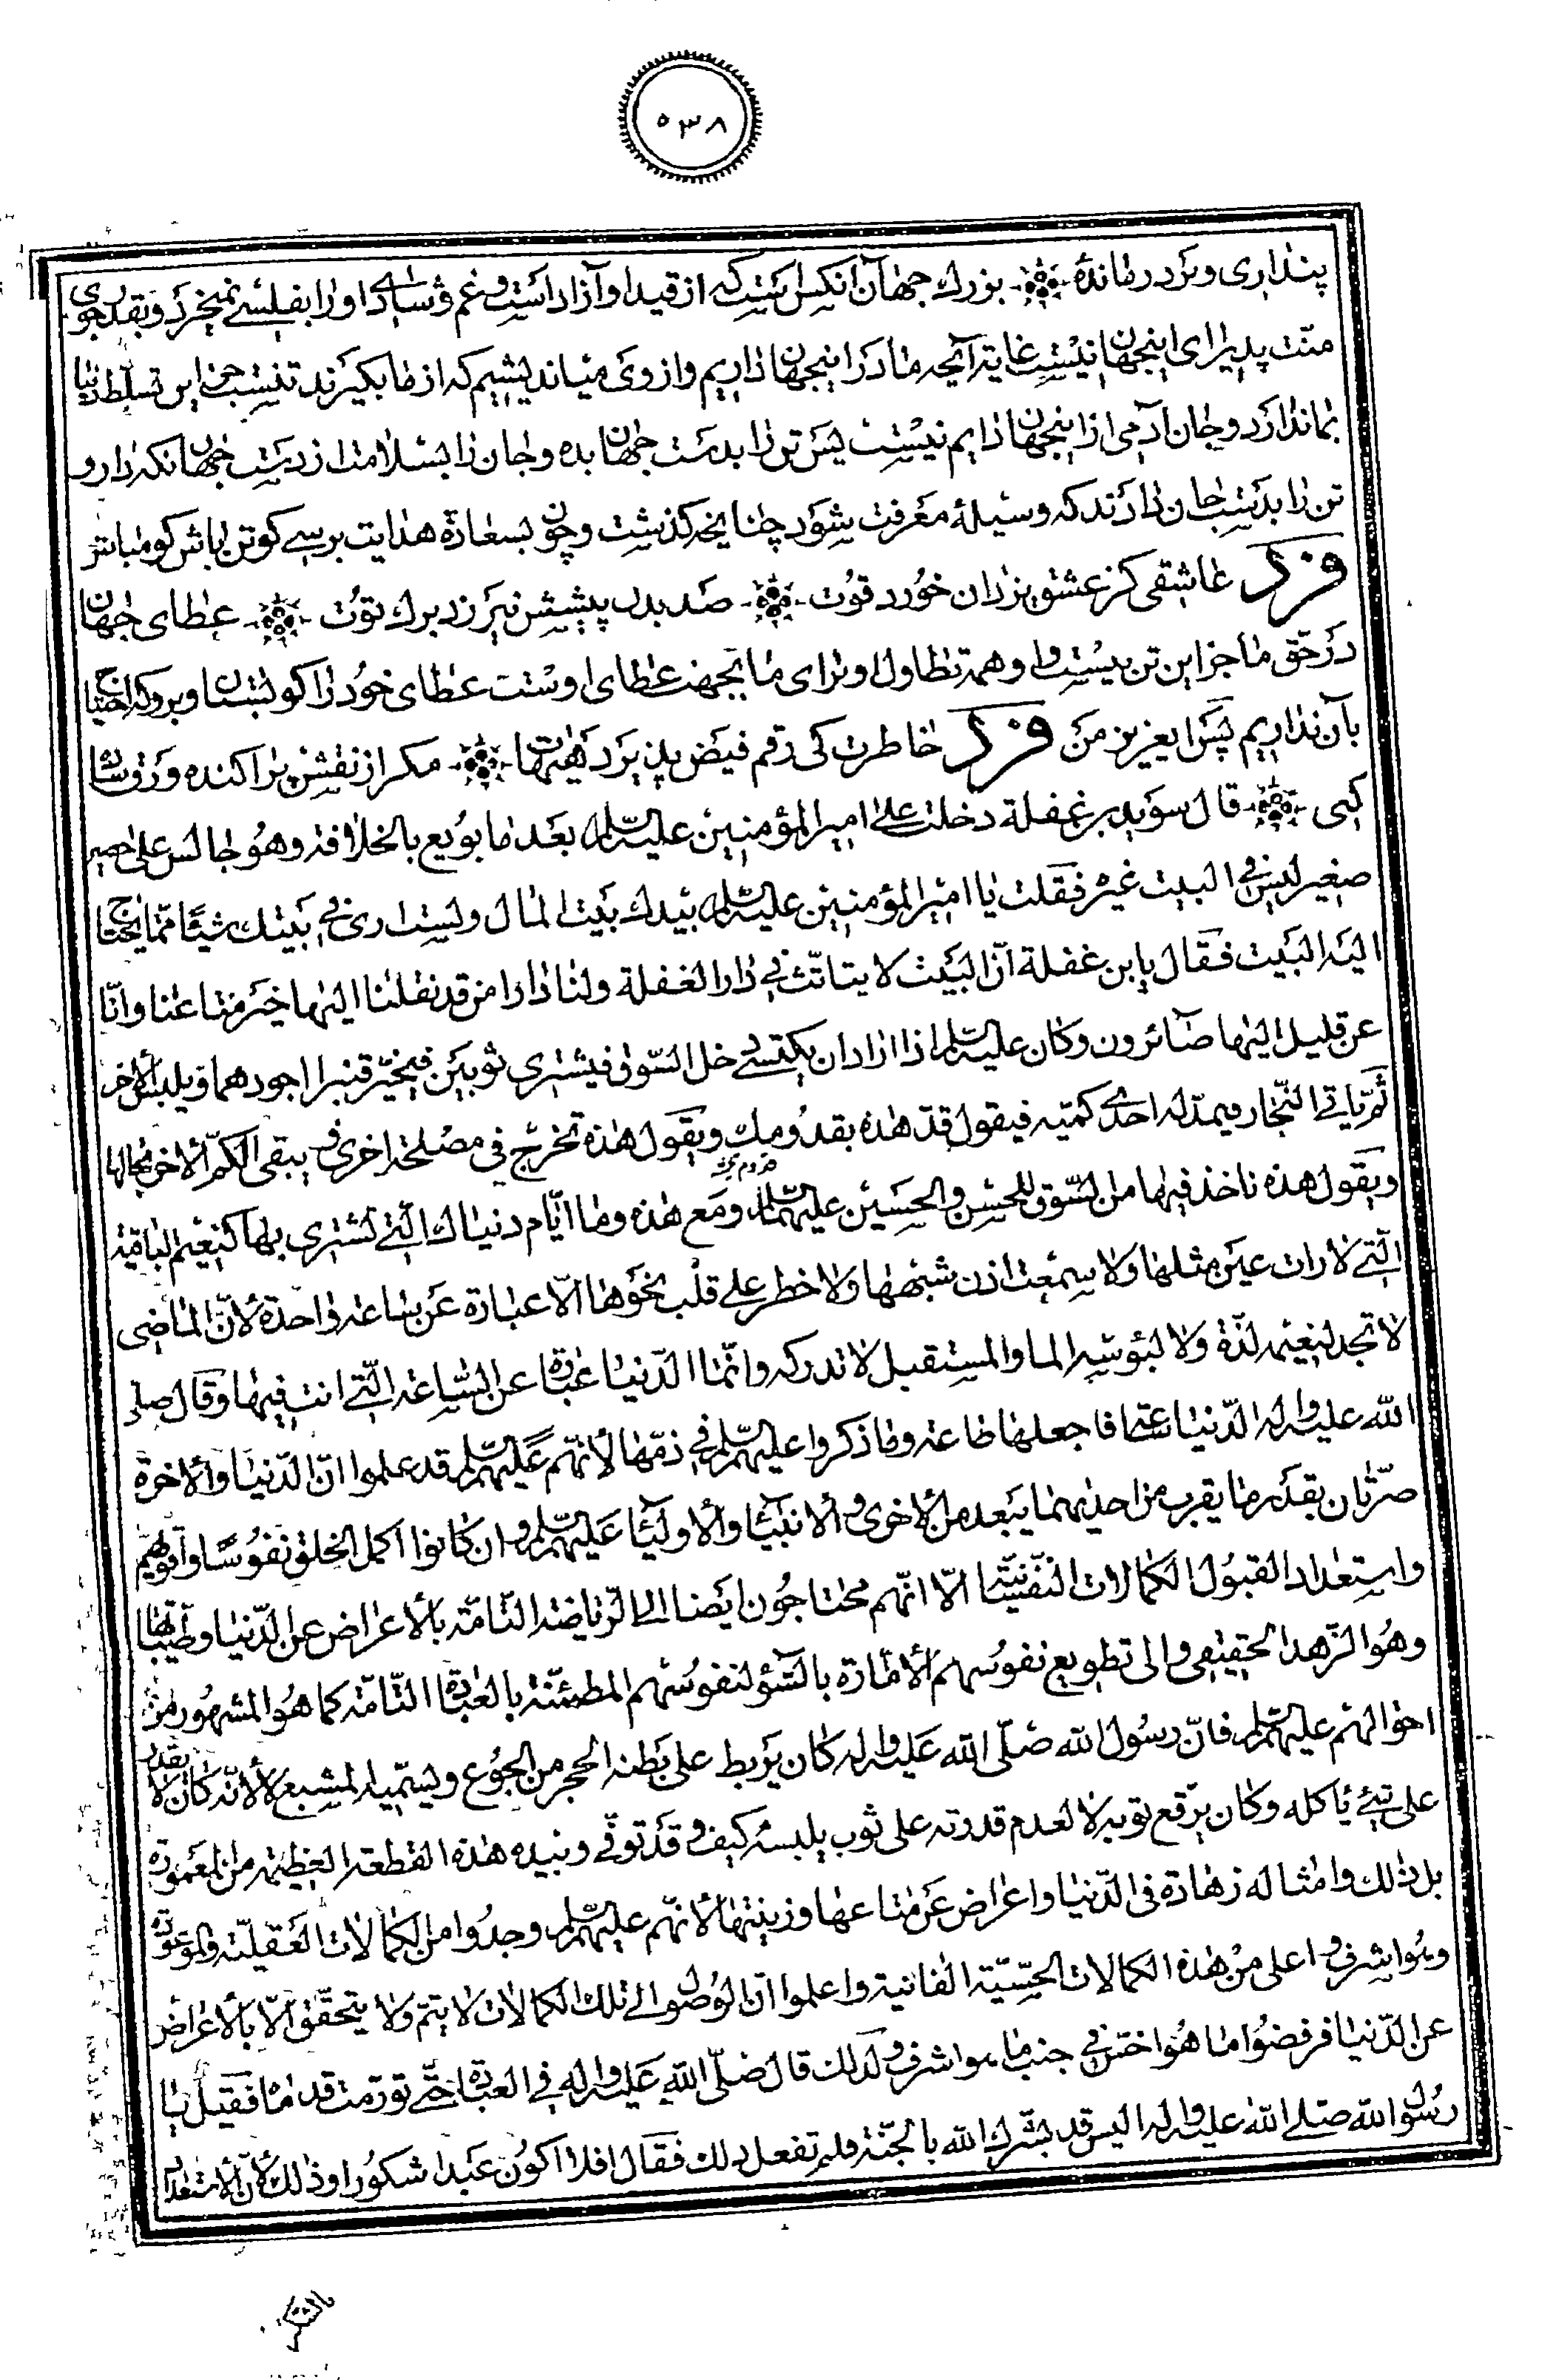 ٥٣٨
پنداری و نزد در مانده بزرك جهان آنکس است که از قید او آزاد است و غم و شادی او را بفلسی نمیخرد و بقدر جوی
منت پذیرای اینجهان نیست غایة آنچه ما در اینجهان داریم و از وی میاندیشیم که از ما بگیرند تنست چون این تسلط دنیا
بما ندارد و جان آدمی از اینجهان دایم نیست پس تن را بدست جهان بده و جان را بسلامت از دست جهان نکه دار و
تن را بدست جان دارند که وسیلهٔ معرفت شود چنانچه کذشت و چون بسعادة هدایت برسی کو تن باش کو مباش
فرد عاشقی کز عشق یزدان خورد قوت صد بدن پیشش نیرزد برك توت عطای جهان
در حق ما جز این تن نیست و او همه تطاول او برای ما بجهت عطای اوست عطای خود را کو بستان و برو که احتیاج
بآن نداریم پس ایعزیز من فرد خاطرت کی رقم فیض پذیرد هیهات مکر از نقش پراکنده ورق ساده
کنی قال سوید بن غفلة دخلت علی امیر المؤمنین علیه السلام بعد ما بویع بالخلافة و هو جالس علی حصیر
صغیر لیس فی البیت غیره فقلت یا امیر المؤمنین علیه السلام بیدك بیت المال و لست اری فی بیتك شیئا مما یحتاج
الیه البیت فقال یابن غفلة ان البیت لا یتاثث فی دار الغفلة و لنا دار امن قد نقلنا الیها خیر متاعنا و انا
عن قلیل الیها صائرون و کان علیه السلام اذا اراد ان یکتسی دخل السوق فیشتری ثوبین فیخیر قنبرا اجودهما و یلبس الاخر
ثم یاتی النجار فیمد له احدی کمیه فیقول قد هذه بقدومك و یقول هذه تخرج فی مصلحة اخری و یبقی الکم الاخر بحالها
و یقول هذه ناخذ فیها من السوق للحسن و الحسین علیهما السلام و مع هذه و ما ایام دنیاك التی تشتری بها کنعیم الباقیة
التی لا رات عین مثلها و لا سمعت اذن شبهها و لا خطر علی قلب نحوها الا عبارة عن ساعة واحدة لان الماضی
لا تجد لنعیمه لذة و لا لبؤسه الما و المستقبل لا تدرکه و انما الدنیا عبارة عن الساعة التی انت فیها و قال صلی
الله علیه و اله الدنیا ساعة فاجعلها طاعة و ما ذکروا علیهم السلام فی ذمها لانهم علیهم السلام قد علموا ان الدنیا و الاخرة
ضرتان بقدر ما یقرب من احدیهما یبعد من الاخری و الانبیاء و الاولیاء علیهم السلام و ان کانوا اکمل الخلق نفوسا و اقویهم
و استعدادا لقبول الکمالات النفسیة الا انهم محتاجون ایضا الی الریاضة التامة بالاعراض عن الدنیا و طیباتها
و هو الزهد الحقیقی و الی تطویع نفوسهم الامارة بالسوء لنفوسهم المطمئنة بالعبادة التامة کما هو المشهور من
احوالهم علیهم السلام فان رسول الله صلی الله علیه و اله کان یربط علی بطنه الحجر من الجوع و یسمیه المشبع لا لانه کان لا یقدر
علی شیئ یاکله و کان یرقع ثوبه لا لعدم قدرته علی ثوب یلبسه کیف و قد توفی و بیده هذه القطعة العظیمة من المعمورة
بل ذلك و امثاله زهادة فی الدنیا و اعراض عن متاعها و زینتها لانهم علیهم السلام وجدوا من الکمالات العقلیة و الموعودة
و هو اشرف و اعلی من هذه الکمالات الحسیة الفانیة و اعلموا ان الوصول الی تلك الکمالات لا یتم و لا یتحقق الا بالاعراض
عن الدنیا فرفضوا ما هو اخس فی جنب ما هو اشرف و لذلك قال صلی الله علیه و اله فی العبادة حتی تورمت قدماه فقیل یا
رسول الله صلی الله علیه و اله الیس قد بشرك الله بالجنة فلم تفعل ذلك فقال افلا اکون عبدا شکورا و ذلك لان الاستعداد
بالشکر